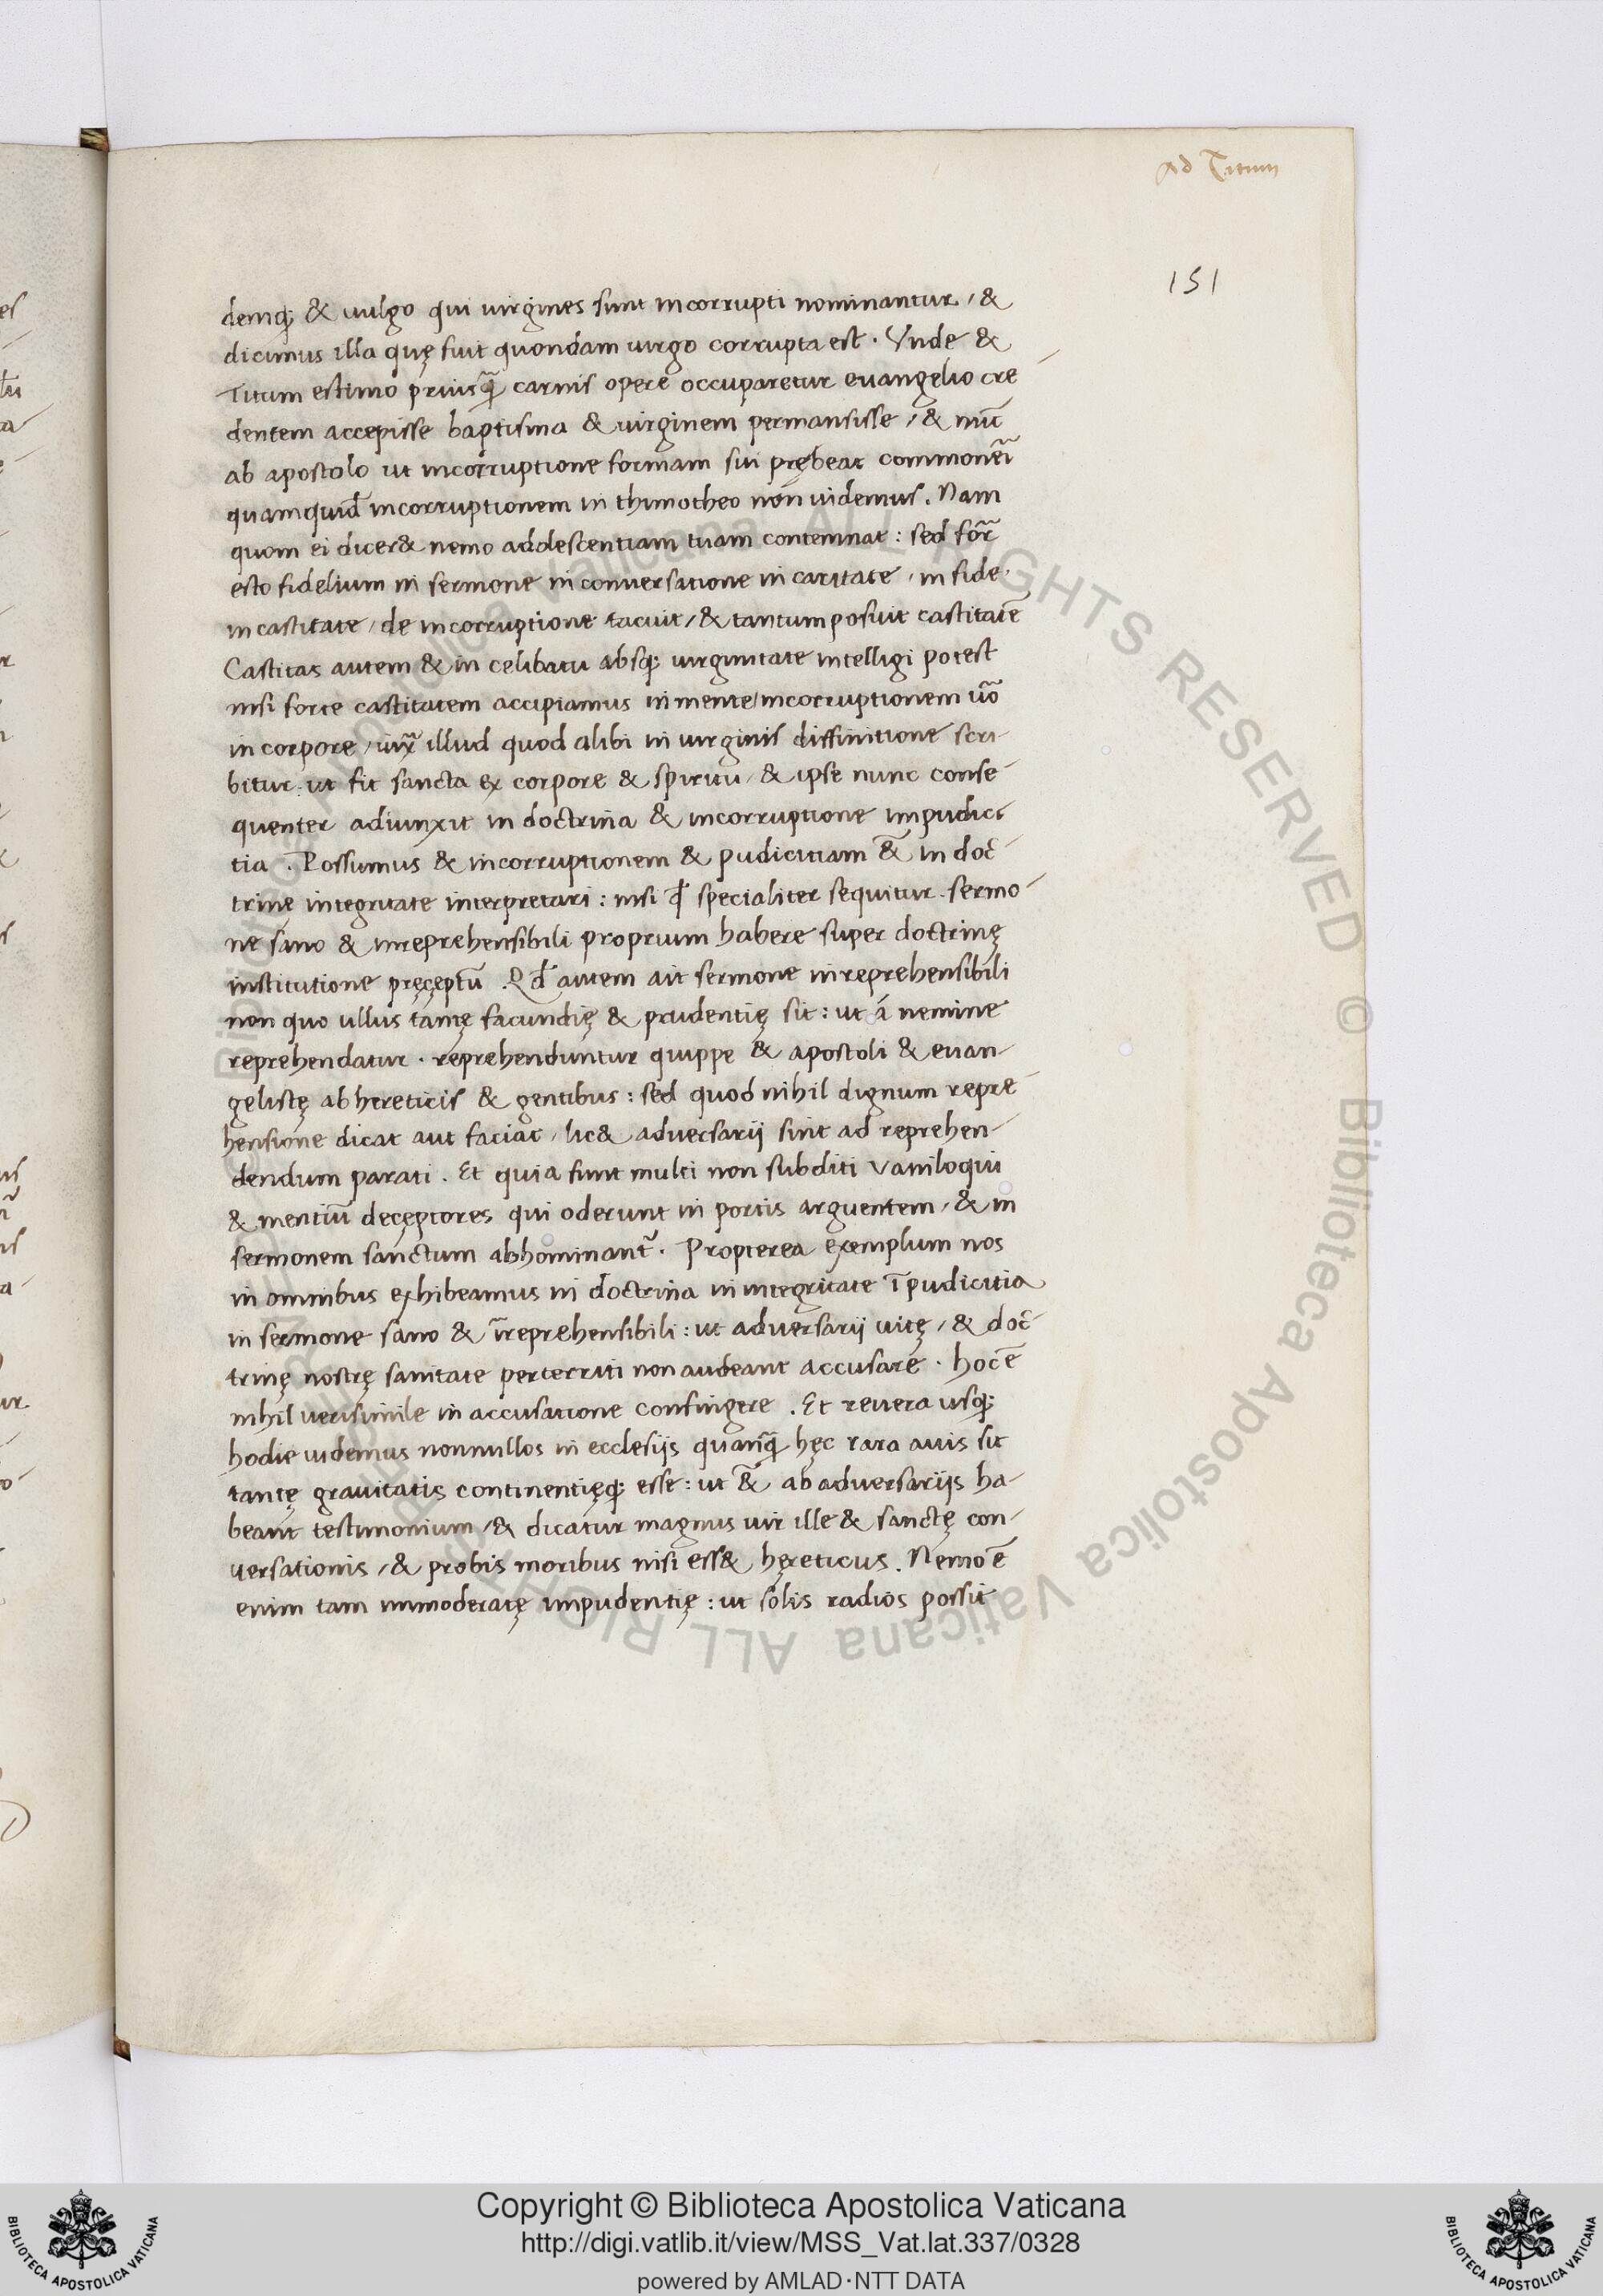 Ad Titum
151
demq; & uulgo qui uirgines sunt incorrupti nominantur / &
dicimus illa quę fuit quondam uirgo corrupta est . Vnde &
Titum estimo priusq̃ carnis opere occuparetur euangelio cre-
dentem accepisse baptisma & uirginem permansisse / & nūc
ab apostolo ut incorruptione formam sui prębeat commonẽi
quamquid̃ incorruptionem in thimotheo non uidemus . Nam
quom ei dicer& nemo addescentiam tuam contemnat : sed for̃
esto fidelium in sermone in conuersatione in caritate / in fide
in castitate / de incorruptione tacuit / & tantum posuit castitatē
Castitas autem & in celibatu absq; uirginitate intelligi potest
nisi forte castitatem accipiamus in mente / incorruptionem ũo
in corpore / iux̃ illud quod alibi in uirginis diffinitione scri-
bitur : ut sit sancta ex corpore & spiritu / & ipse nunc conse-
quenter adiunxit in doctrina & incorruptione impudici-
tia . Possumus & incorruptionem & pudicitiam &̃ in doc̃-
trinę integritate interpretari : nisi qđ specialiter sequitur sermo-
ne sano & inreprehensibili proprium habere super doctrinę
institutione pręceptū . Qđ autem ait sermone inreprehensibili
non quo ullus tantę facundię & prudentię sit : ut á nemine
reprehendatur . reprehenduntur quippe & apostoli & euan-
gelistę ab hereticis & gentibus : sed quod nihil dignum repre-
hensione dicat aut faciat / lic& aduersarij sint ad reprehen-
dendum parati . Et quia sunt multi non subditi vaniloqui
& mentiū deceptores qui oderunt in portis arguentem / & in
sermonem sanctum abhominant̃ . Propterea exemplum nos
in omnibus exhibeamus in doctrina in integritate ī pudicitia
in sermone sano & īreprehensibili : ut aduersarij uitę / & doc̃-
trinę nostrę sanitate perterriti non audeant accusare . hoc ē
nihil uerisimile in accusatione confingere . Et reuera usq;
hodie uidemus nonnullos in ecclesijs quanq̃ hęc rara auis sit
tantę grauitatis continentięq; esse : ut &̃ ab aduersarijs ha-
beant testimonium / & dicatur magnus uir ille & sanctę con-
uersationis / & probis moribus nisi ess& hęreticus . Nemo ē
enim tam immoderatę impudentię : ut solis radios possit
Copyright © Biblioteca Apostolica Vaticana
http://digi.vatlib.it/view/MSS_Vat.lat.337/0328
powered by AMLAD·NTT DATA